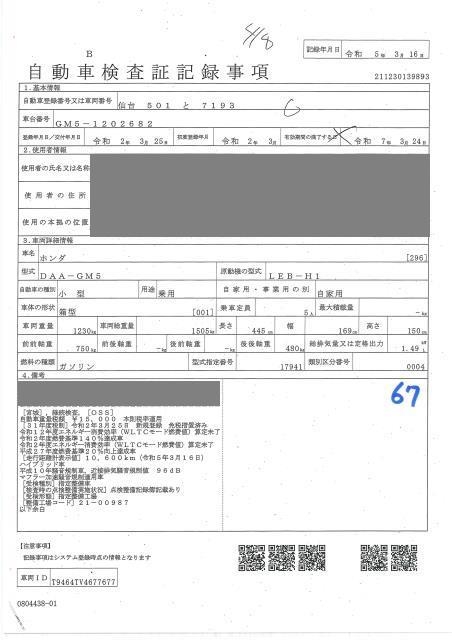 B
4/8
記録年月日 令和 5年 3月 16日
自動車検査証記録事項
211230139893
1.基本情報
自動車登録番号又は車両番号 仙台 501 と 7193
車台番号 GM5-1202682
登録年月日/交付年月日 令和 2年 3月 25日 初度登録年月 令和 2年 3月 有効期間の満了する日 令和 7年 3月 24日
2.使用者情報
使用者の氏名又は名称
使用者の住所
使用の本拠の位置
3.車両詳細情報
車名 ホンダ [296]
型式 DAA-GM5 原動機の型式 LEB-H1
自動車の種別 小型 用途 乗用 自家用・事業用の別 自家用
車体の形状 箱型 [001] 乗車定員 5人 最大積載量 -kg
車両重量 1230kg 車両総重量 1505kg 長さ 445cm 幅 169cm 高さ 150cm
前前軸重 750kg 前後軸重 -kg 後前軸重 -kg 後後軸重 480kg 総排気量又は定格出力 1.49 kW L
燃料の種類 ガソリン 型式指定番号 17941 類別区分番号 0004
4.備考
67
[宮城],継続検査,[OSS]
自動車重量税額 ¥15,000 本則税率適用
[31年度税制]令和2年3月25日 新規登録 免税措置済み
令和12年度エネルギー消費効率(WLTCモード燃費値)算定未了
令和2年度燃費基準140%達成車
令和2年度エネルギー消費効率(WLTCモード燃費値)算定未了
平成27年度燃費基準20%向上達成車
[走行距離計表示値]10,600km(令和5年3月16日)
ハイブリッド車
平成10年騒音規制車,近接排気騒音規制値 96dB
マフラー加速騒音規制適用車
[受検種別]指定整備車
[検査時の点検整備実施状況]点検整備記録簿記載あり
[受検形態]指定整備工場
[整備工場コード]21-00987
以下余白
【注意事項】
記録事項はシステム登録時点の情報となります
車両ID T9464TV4677677
0804438-01